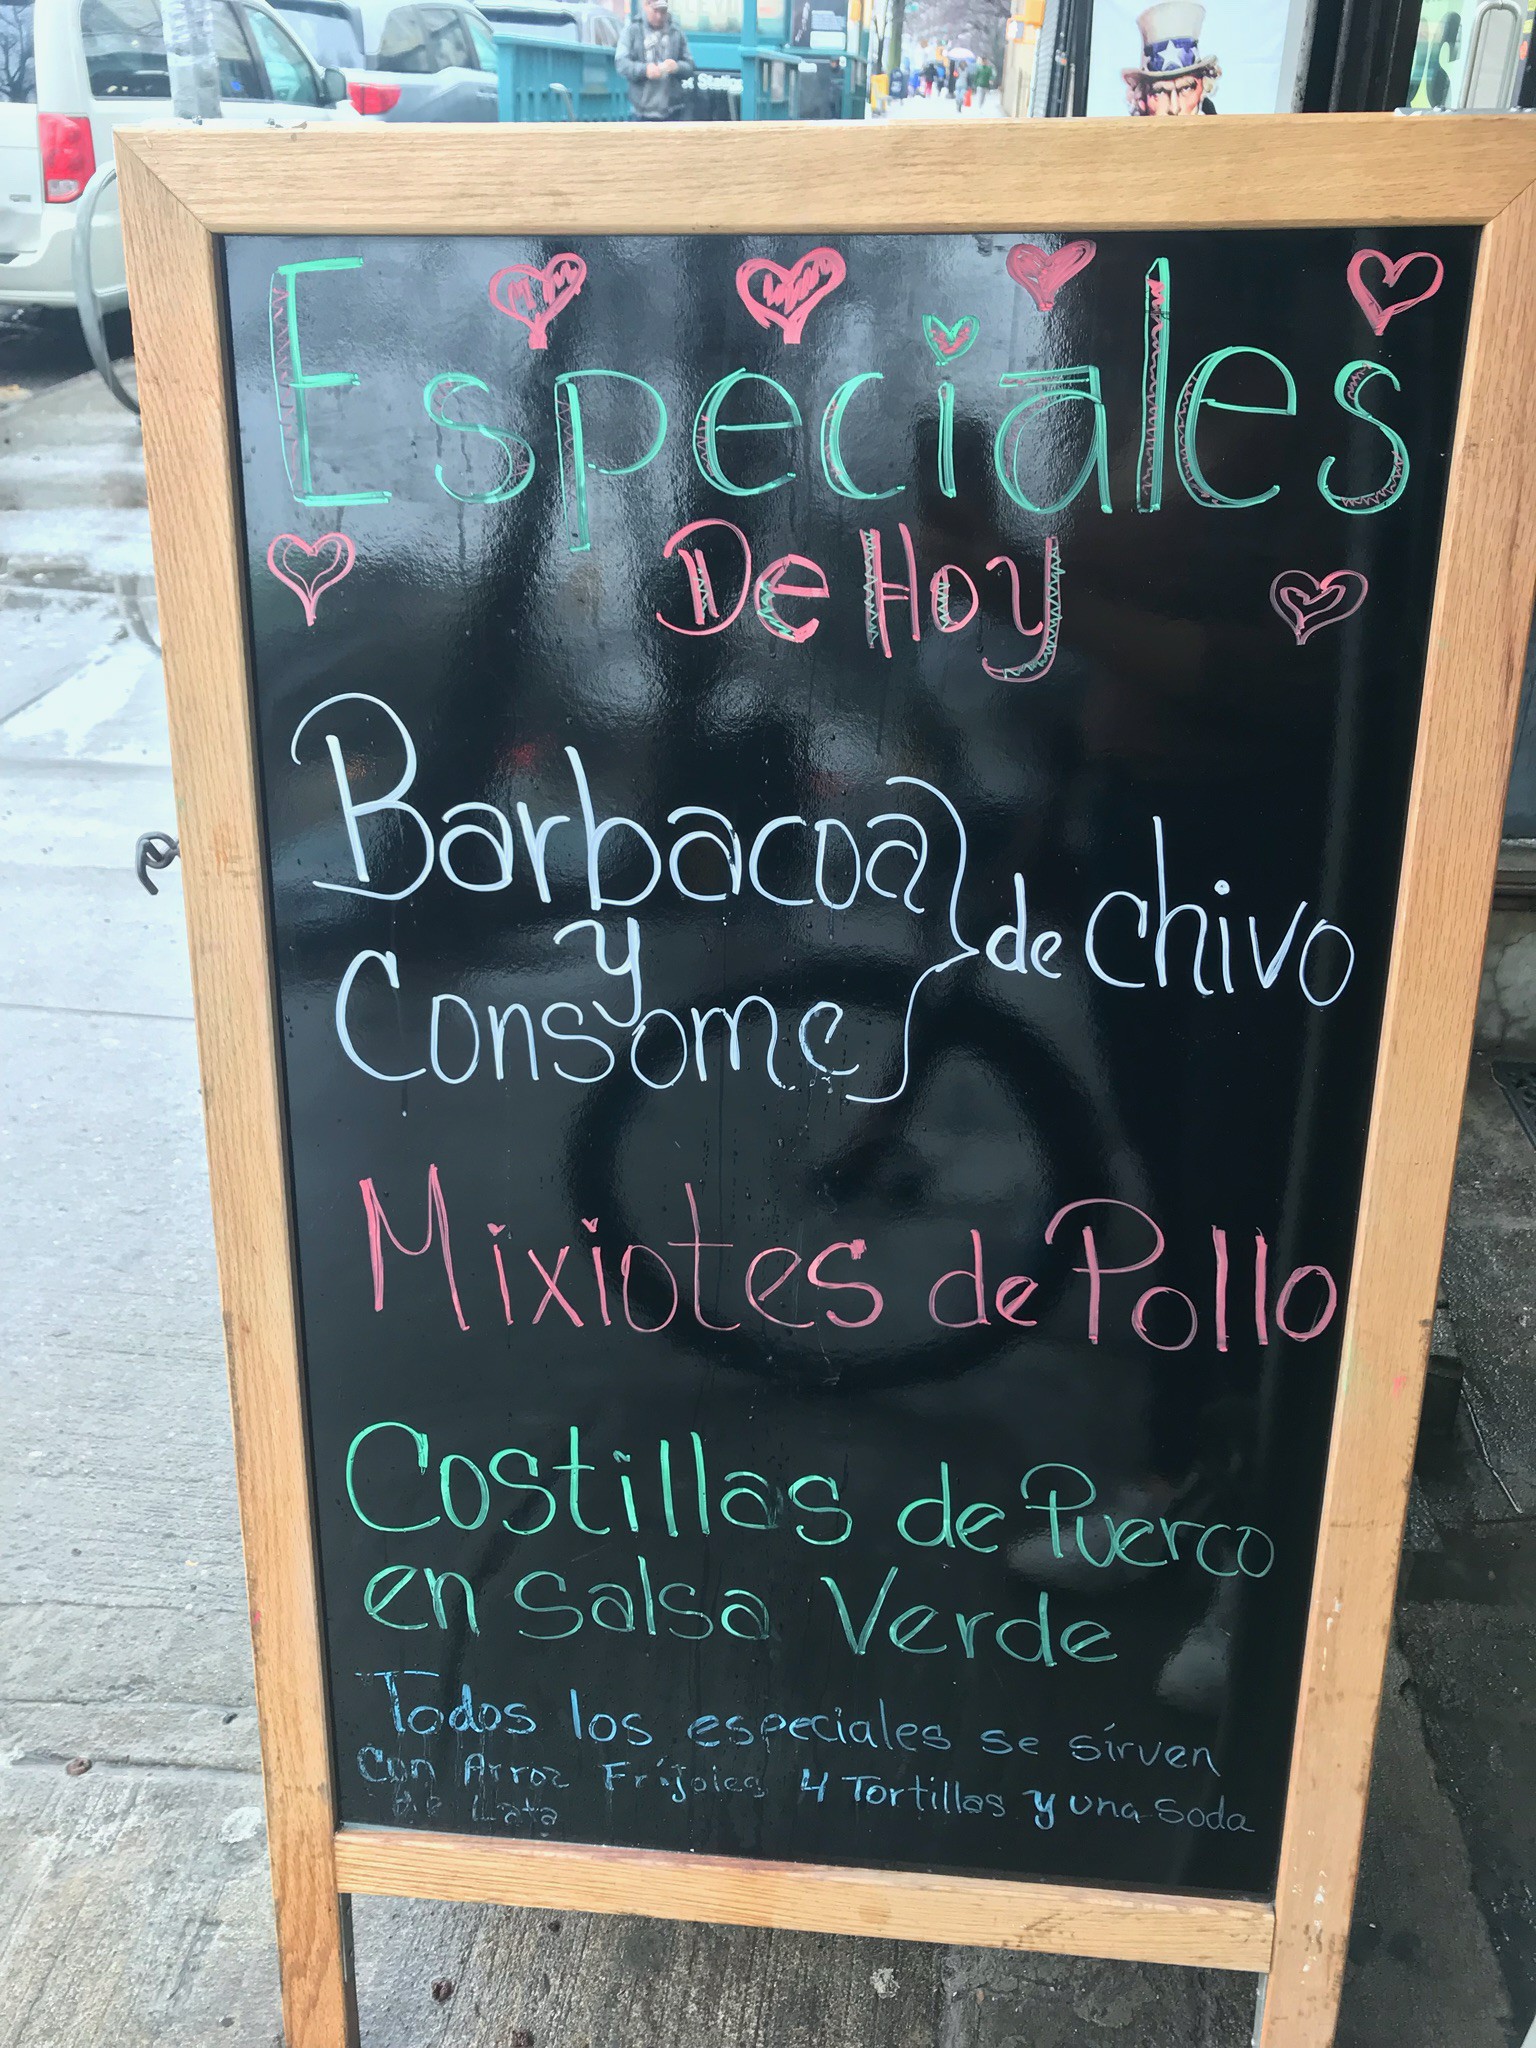 Especiales
De Hoy
Barbacoa
y
Consome
de chivo
Mixiotes de Pollo
Costillas de Puerco
en Salsa Verde
Todos los especiales se sirven
Con Arroz Frijoles 4 Tortillas y una Soda
de Lata